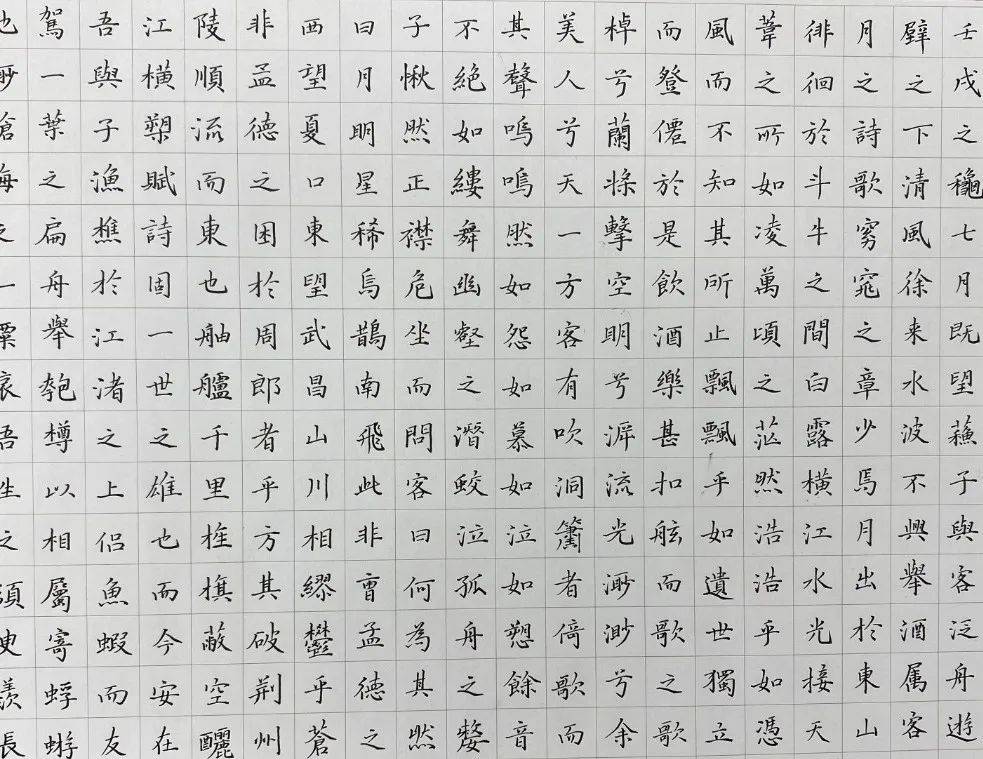 壬戌之穐七月既望蘓子與客泛舟遊
壁之下清風徐来水波不興舉酒属客
月之詩歌窈窕之章少焉月出於東山
徘徊於斗牛之間白露橫江水光接天
葦之所如凌萬頃之茫然浩浩乎如憑
風而不知其所止飄飄乎如遺世獨立
而登僊於是飲酒樂甚扣舷而歌之歌
棹兮蘭槳擊空明兮泝流光渺渺兮余
美人兮天一方客有吹洞簫者倚歌而
其聲嗚嗚然如怨如慕如泣如愬餘音
不絕如縷舞幽壑之潛蛟泣孤舟之嫠
子愀然正襟危坐而問客曰何為其然
曰月明星稀烏鵲南飛此非曹孟德之
西望夏口東望武昌山川相繆鬱乎蒼
非孟德之困於周郎者乎方其破荊州
陵順流而東也舳艫千里旌旗蔽空釃
江橫槊賦詩固一世之雄也而今安在
吾與子漁樵於江渚之上侶魚蝦而友
駕一葉之扁舟舉匏樽以相屬寄蜉蝣
也渺滄海之一粟哀吾生之須臾羨長